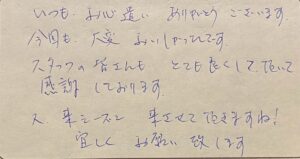 いつも お心遣い ありがとう ございます。
今回も 大変 おいしかったです
スタッフの皆さんも とても良くして頂いて
感謝しております。
又 来シーズン 来させて頂きますね!
宜しく お願い 致します